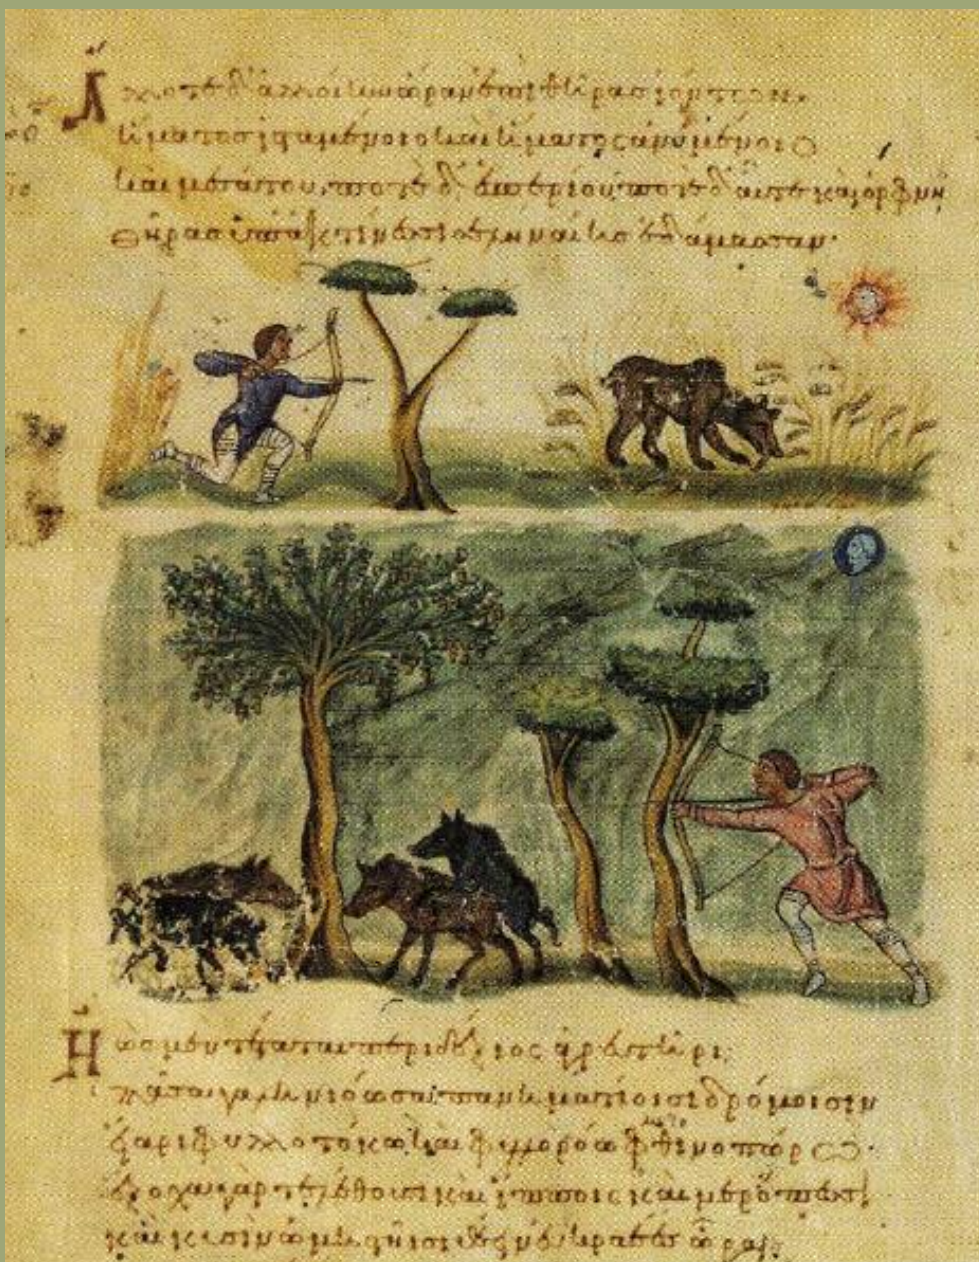 Ἄλλοτε δ' ἀλλοίην ὥραν ἐπὶ θῆρας ἰόντων.
ἤματος ἱσταμένοιο καὶ ἤματος ἀνυμένοιο
καὶ μεσάτου, ποτὲ δ' ἑσπερίου, ποτὲ δ' αὖτε καὶ ὄρφνη
θῆρας ὑπ' ἀκτίνεσσι σεληναίης ἐδάμασσαν·
Ἠὼς μὲν τέταται περιδέξιος ἀγρευτῆρι·
πᾶσα δρόμοισιν
εἴαρι φυλλοτόκω καὶ φυλλορόω φθινοπώρω·
ἔξοχα γὰρ τελέθουσι καὶ ἵπποις καὶ μερόπεσσι
καὶ κυσὶν ὠμηστῆσι ὧραι·